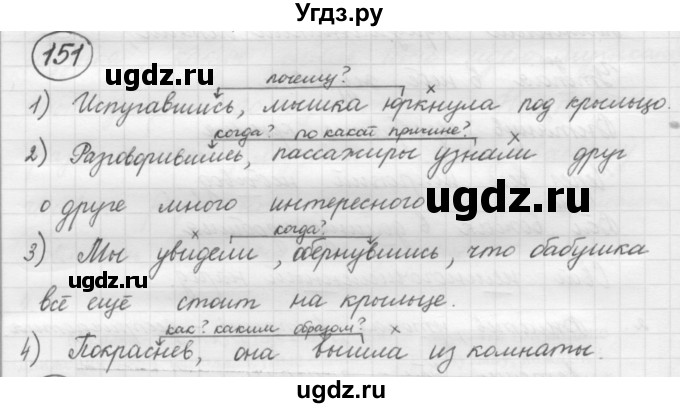 Угдз.ру
151
ugdz.ru
ugdz.ru
почему? ×
1) Испугавшись, мышка юркнула под крыльцо.
когда? по какой причине? ×
2) Разговорившись, пассажиры узнали друг
о друге много интересного.
ugdz.ru
× когда?
3) Мы увидели, обернувшись, что бабушка
всё ещё стоит на крыльце.
ugdz.ru
как? каким образом? ×
4) Покраснев, она вышла из комнаты.
ugdz.ru